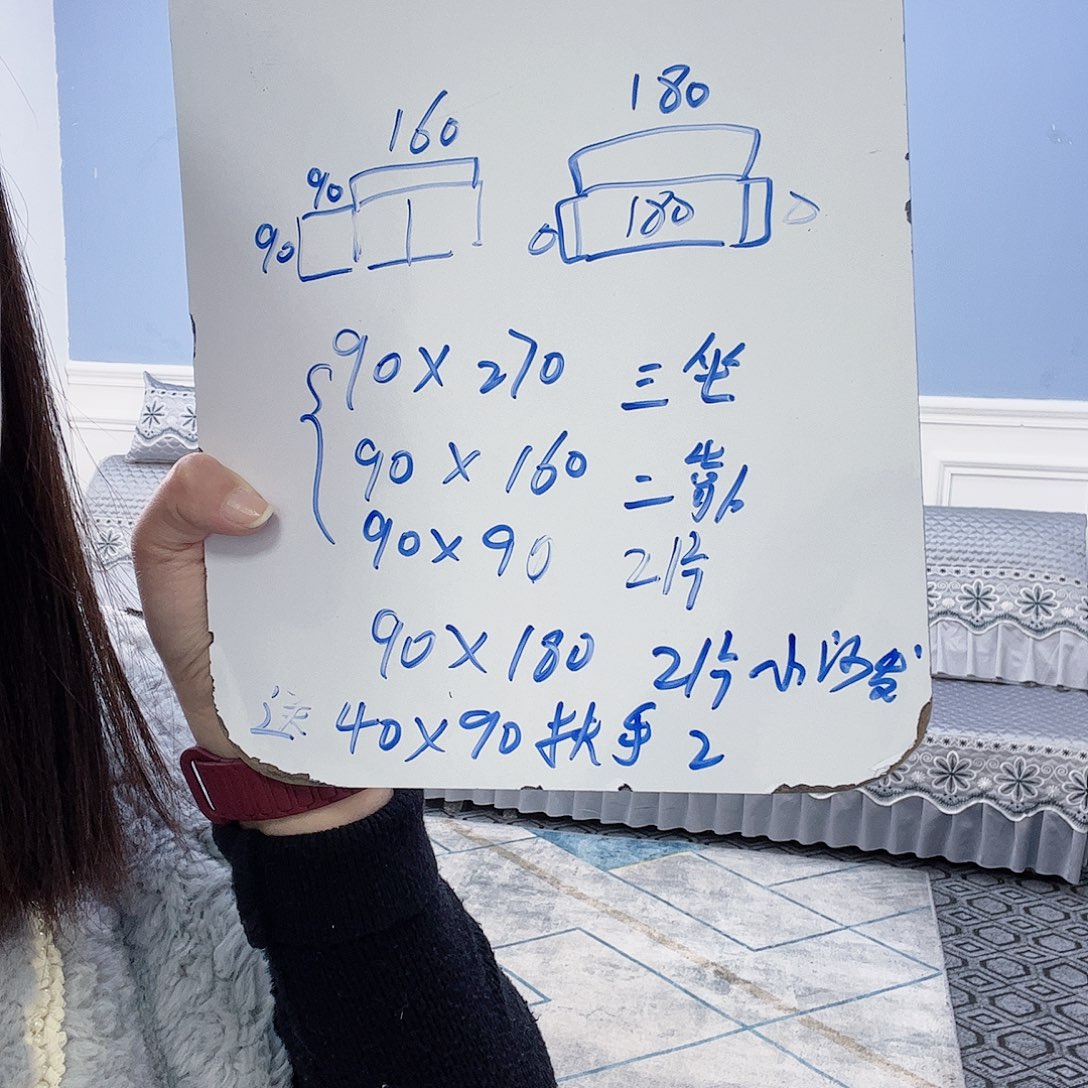 160
180
90
90
180
90×270 三坐
90×160 二靠
90×90 2片
90×180 2片小沙发
送 40×90扶手2